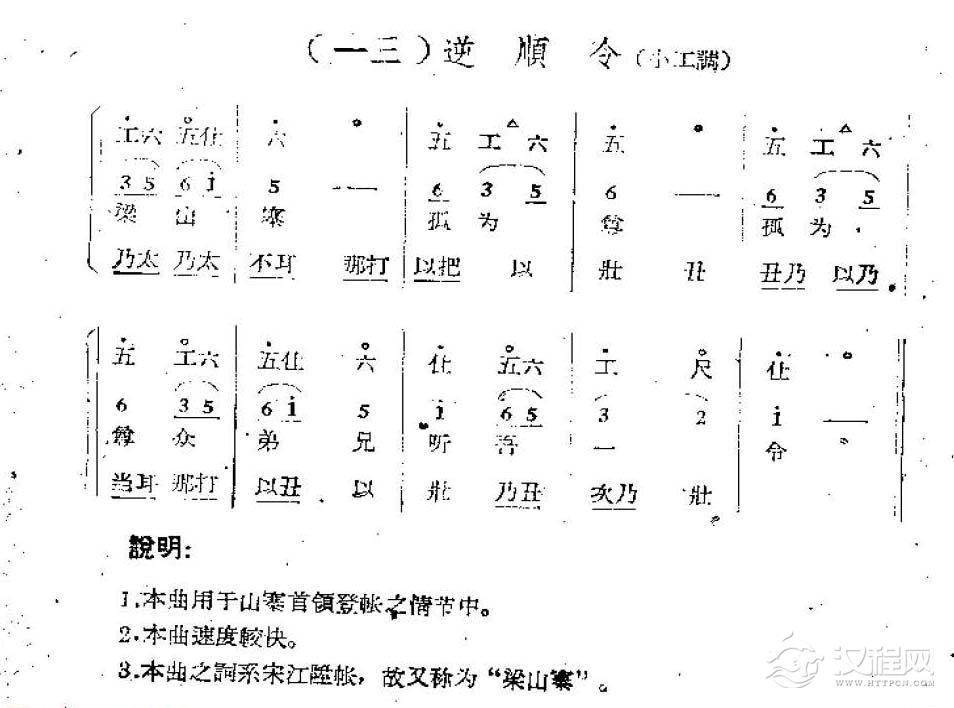 （一三）逆 順 令（小工調）
工六 五仩 六 五 工 六 五 五 工 六
3 5 6 i 5 — 6 3 5 6 — 6 3 5
梁 山 寨 孤 为 尊 孤 为
乃太 乃太 不耳 那打 以把 以 壯 丑 丑乃 以乃
五 工六 五仩 六 仩 五六 工 尺 仩
6 3 5 6 i 5 i 6 5 3 2 i —
尊 众 弟 兄 听 吾 一 令
当耳 那打 以丑 以 壯 乃丑 次乃 壯
說明:
1.本曲用于山寨首領登帐之情节中。
2.本曲速度較快。
3.本曲之詞系宋江陞帐，故又称为“梁山寨”。
汉程网
WWW.HTTPCN.COM